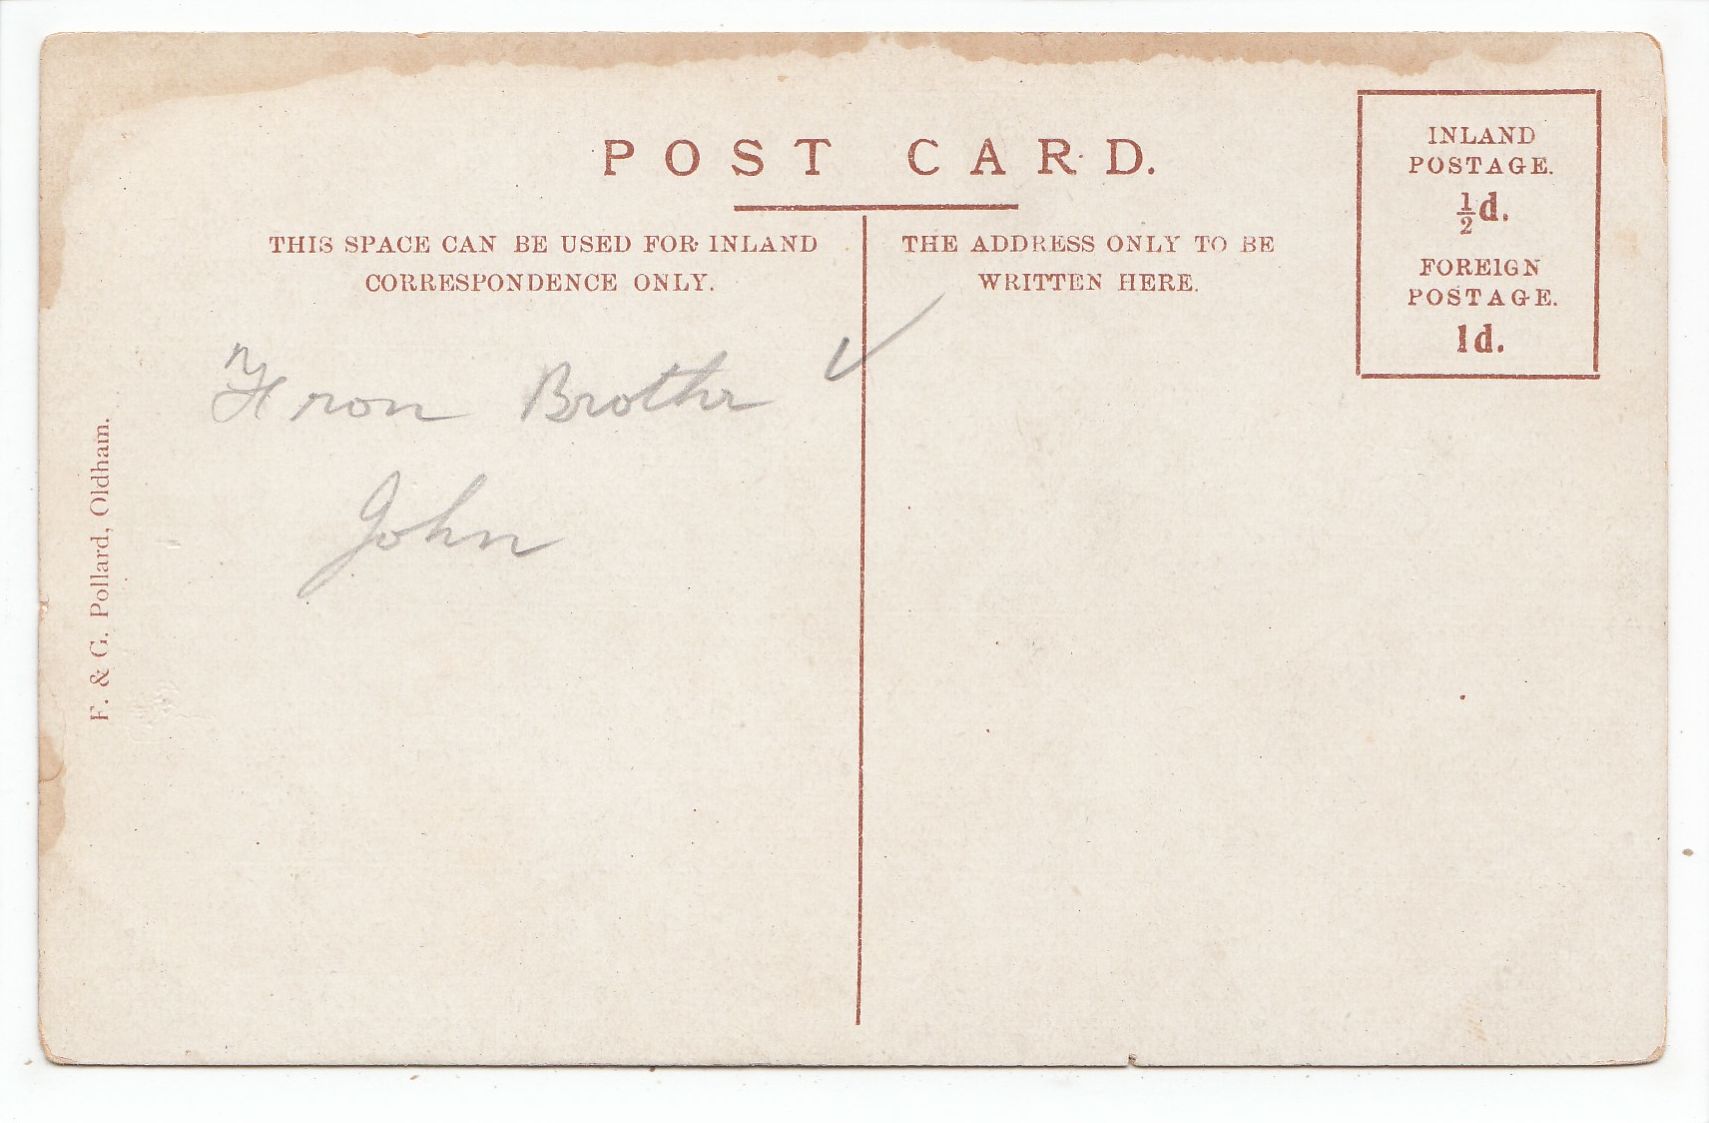 POST CARD.
THIS SPACE CAN BE USED FOR INLAND
CORRESPONDENCE ONLY.
THE ADDRESS ONLY TO BE
WRITTEN HERE.
INLAND
POSTAGE.
½d.
FOREIGN
POSTAGE.
1d.
From Brother
John
F. & G. Pollard, Oldham.